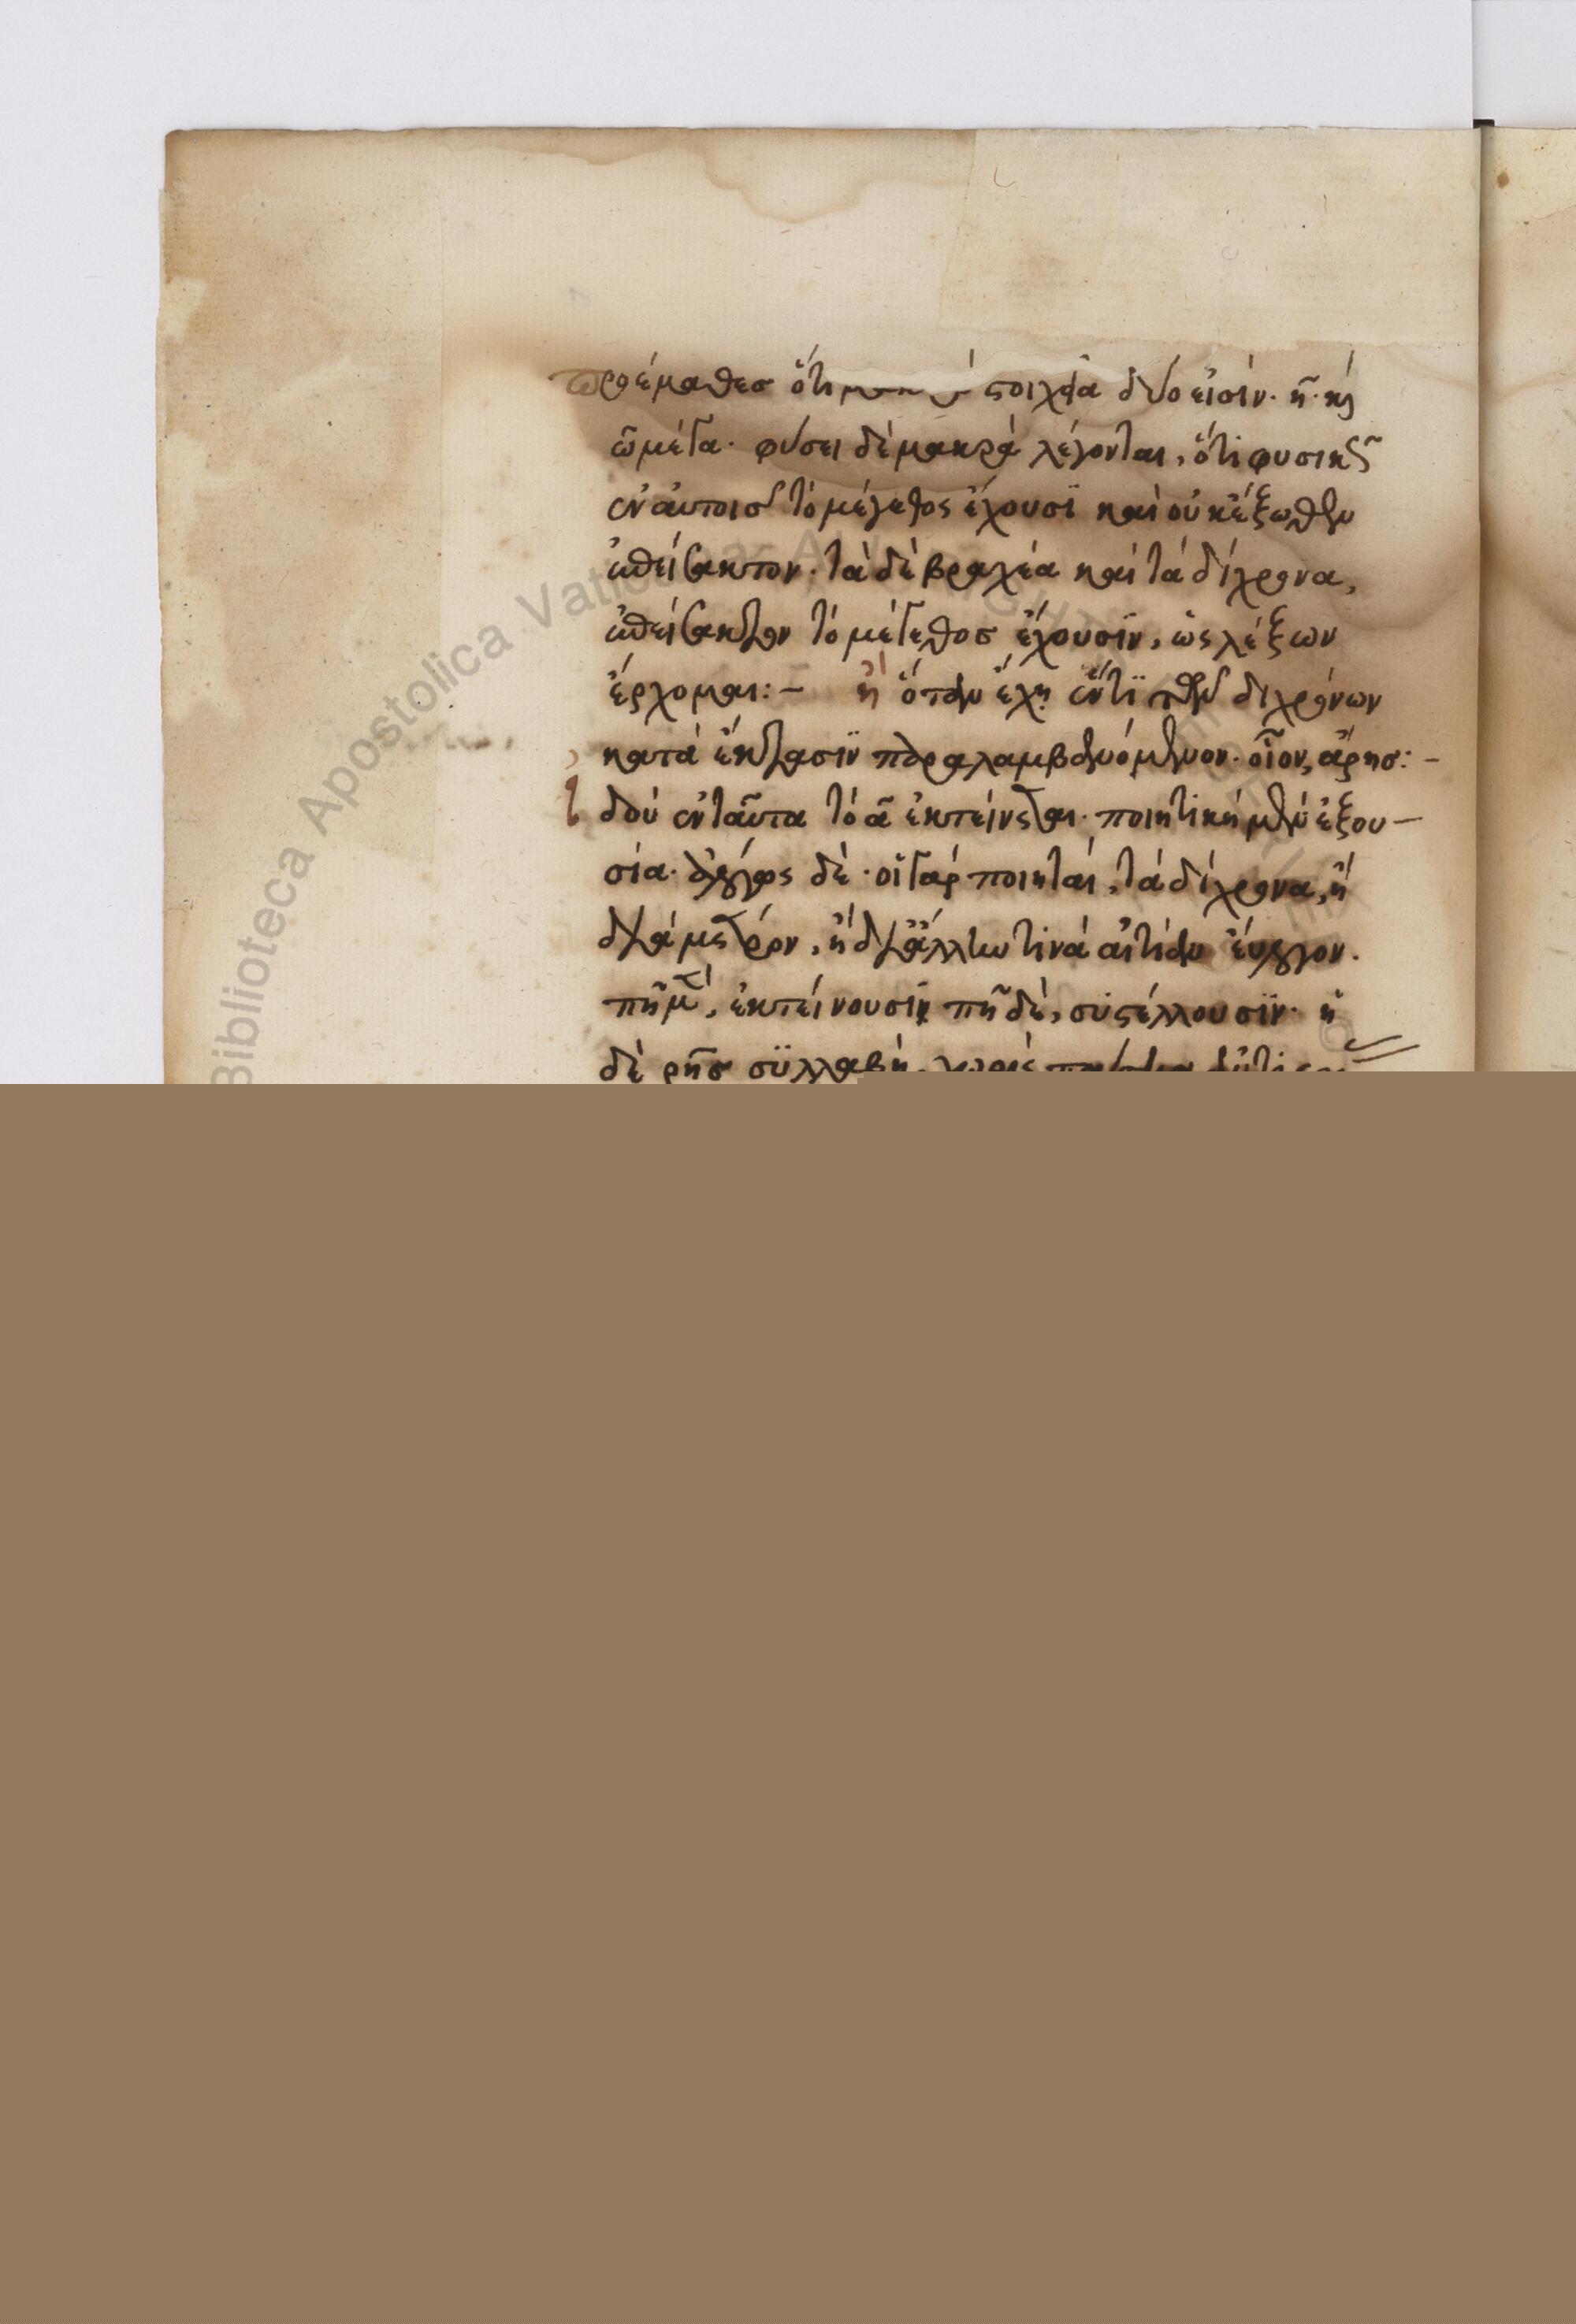 προέμαθες ὅτι στοιχεῖα δύο εἰσίν· η καὶ
ω μέγα· φύσει δὲ μακρὰ λέγονται, ὅτι φυσικῶς
ἐν αὐτοῖς τὸ μέγεθος ἔχουσι καὶ οὐκ ἔξωθεν
ἐπείσακτον· τὰ δὲ βραχέα καὶ τὰ δίχρονα,
ἐπείσακτον τὸ μέγεθος ἔχουσιν, ὡς λέξων
ἔρχομαι:— ἢ ὅταν ἔχῃ ἕν τι τῶν διχρόνων
κατὰ ἔκτασιν παραλαμβανόμενον· οἷον, ἄρης:—
ἰδοὺ ἐνταῦτα τὸ α ἐκτείνεται· ποιητικῆ μὲν ἐξου—
σία· λόγος δὲ· οἱ γὰρ ποιηταὶ, τὰ δίχρονα, ἢ
διὰ μέτρον, ἢ δι' ἄλλην τινὰ αἰτίαν εὔλογον·
πῆ μὲν, ἐκτείνουσιν πῆ δὲ, συστέλλουσιν· ἡ
δὲ ρης συλλαβὴ, χωρὶς
Biblioteca Apostolica Vaticana